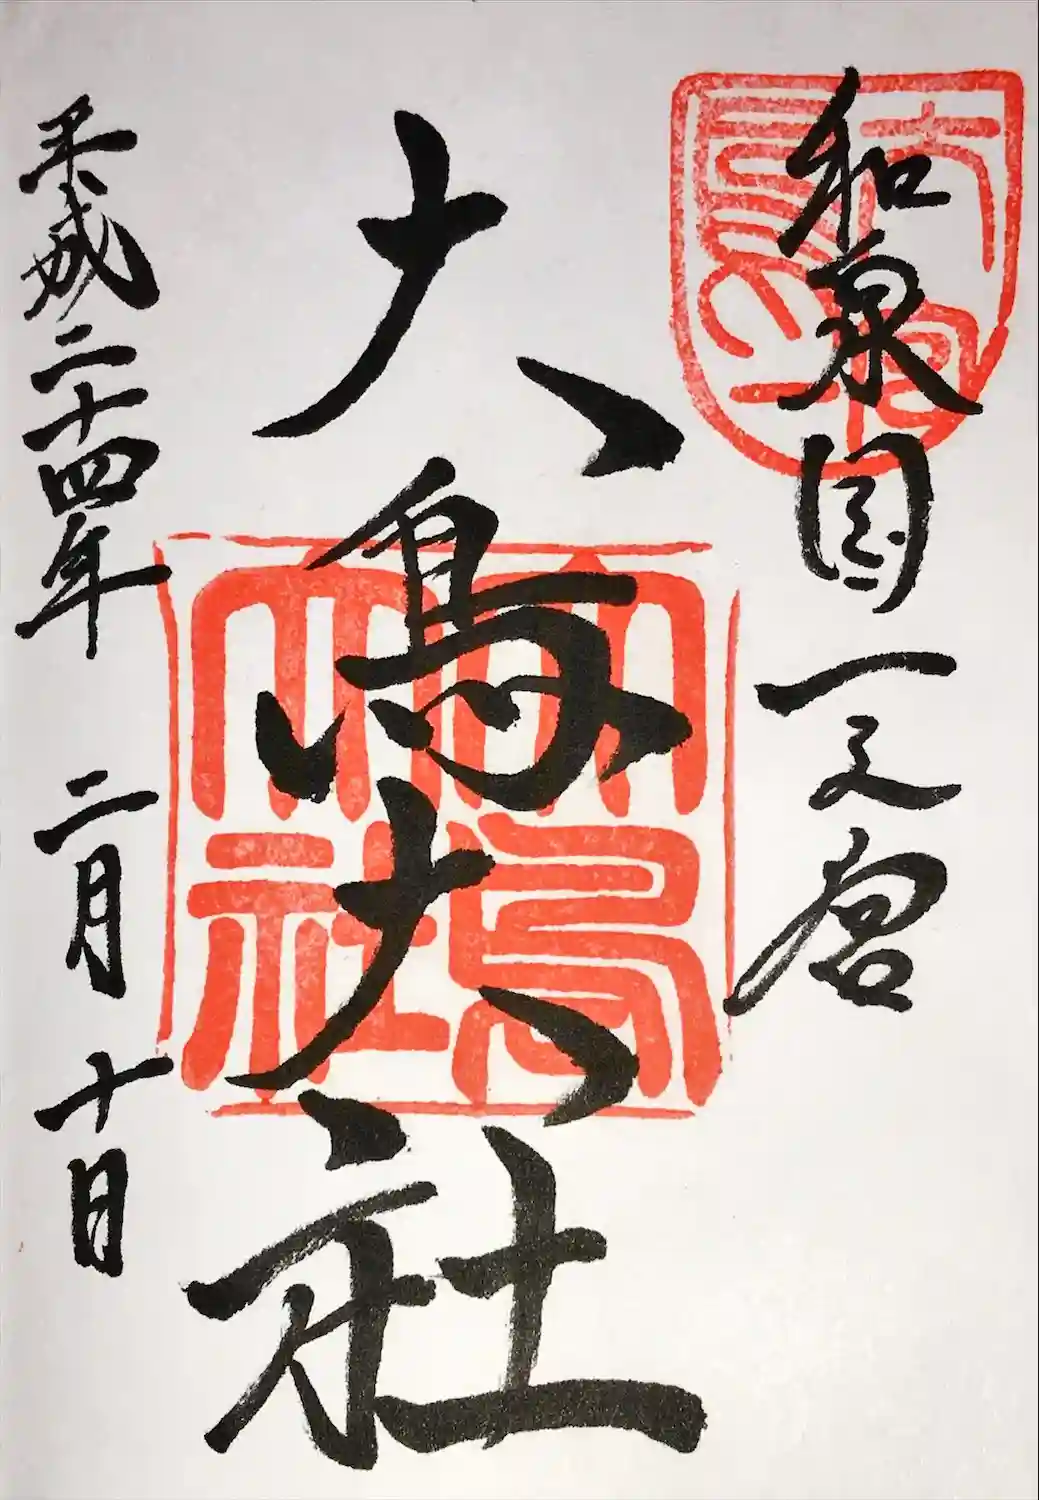 和泉国一之宮
大鳥大社
平成二十四年 二月 十日
大鳥大社